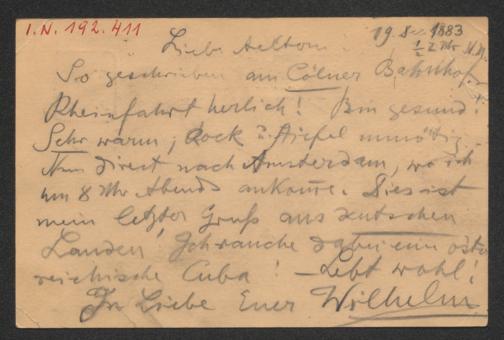 I.N. 192.411
19. 8. 1883
½ 2 Uhr N.M.
Liebe Aeltern.
So geschrieben am Cölner Bahnhof.
Rheinfahrt herlich! Bin gesund.
Sehr warm, Rock u. Stiefel unnötig.
Nun direct nach Amsterdam, wo ich
um 8 Uhr Abends ankome. Dies ist
mein letzter Gruß aus deutschen
Landen, Ich rauche dabei eine öster
reichische Cuba! – Lebt wohl!
In Liebe Euer Wilhelm